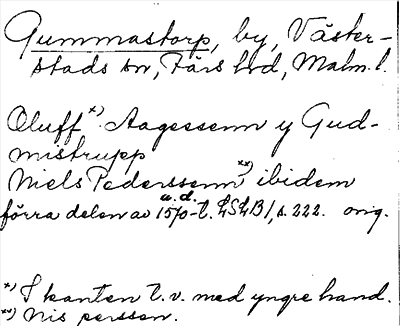 Gummastorp, by, Väster-
stads sn, Färs hrd, Malm. l.
Oluff *) Aagessenn y Gud-
mistrupp
Niels Pederssenn **) ibidem
a. d.
förra delen av 1570-t. LSLB 1, s. 222. orig.
*) I kanten t. v. med yngre hand.
**) Nis perssen.